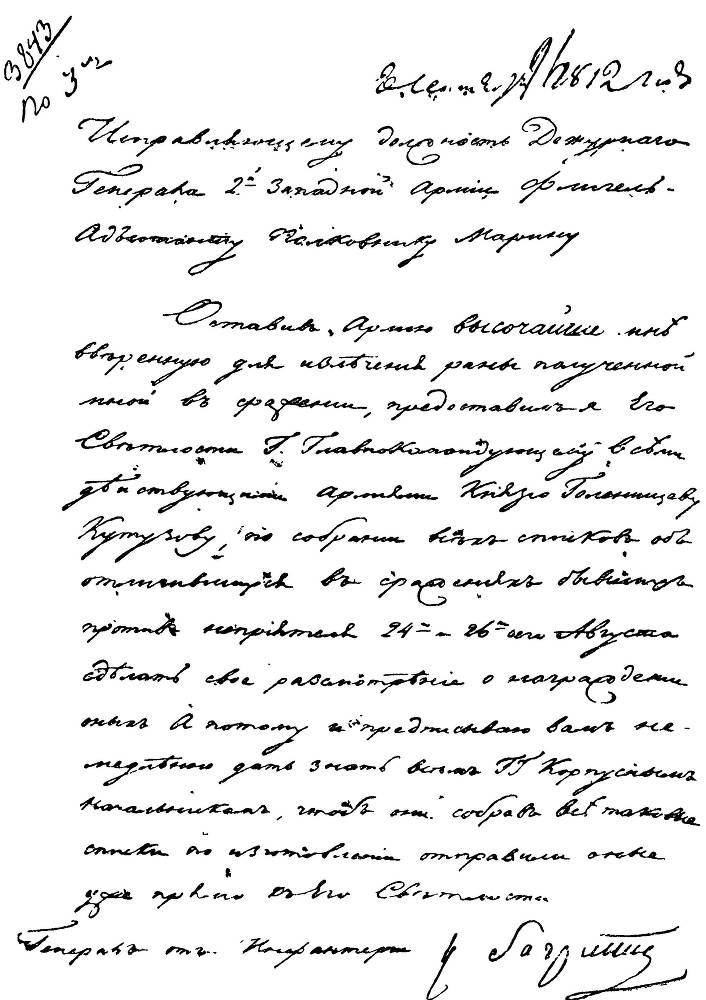 3843
по 3му
1812 года
Исправляющему должность Дежурнаго
Генерала 2й Западной Армiи Флигель-
Адъютанту Полковнику Марину
Оставив Армiю высочайше мнѣ
ввѣренную для излѣченiя раны полученной
мной въ сраженiи, предоставилъ я Его
Свѣтлости Г. Главнокомандующему всѣми
дѣйствующими армiями Князю Голенищеву
Кутузову, по собранiи всѣхъ списковъ объ
отличившихся въ сраженiяхъ бывшихъ
противъ непрiятеля 24го и 26го Августа
сдѣлать свое разсмотрѣнiе о награжденiи
оныхъ А потому и предписываю вамъ не-
медлѣнно дать знать всѣмъ ГГ Корпуснымъ
начальникамъ, чтобъ они собравъ всѣ таковые
списки по изготовленiи отправили оные
уже прямо къ Его Свѣтлости
Генералъ отъ Инфантерiи К Багратiонъ